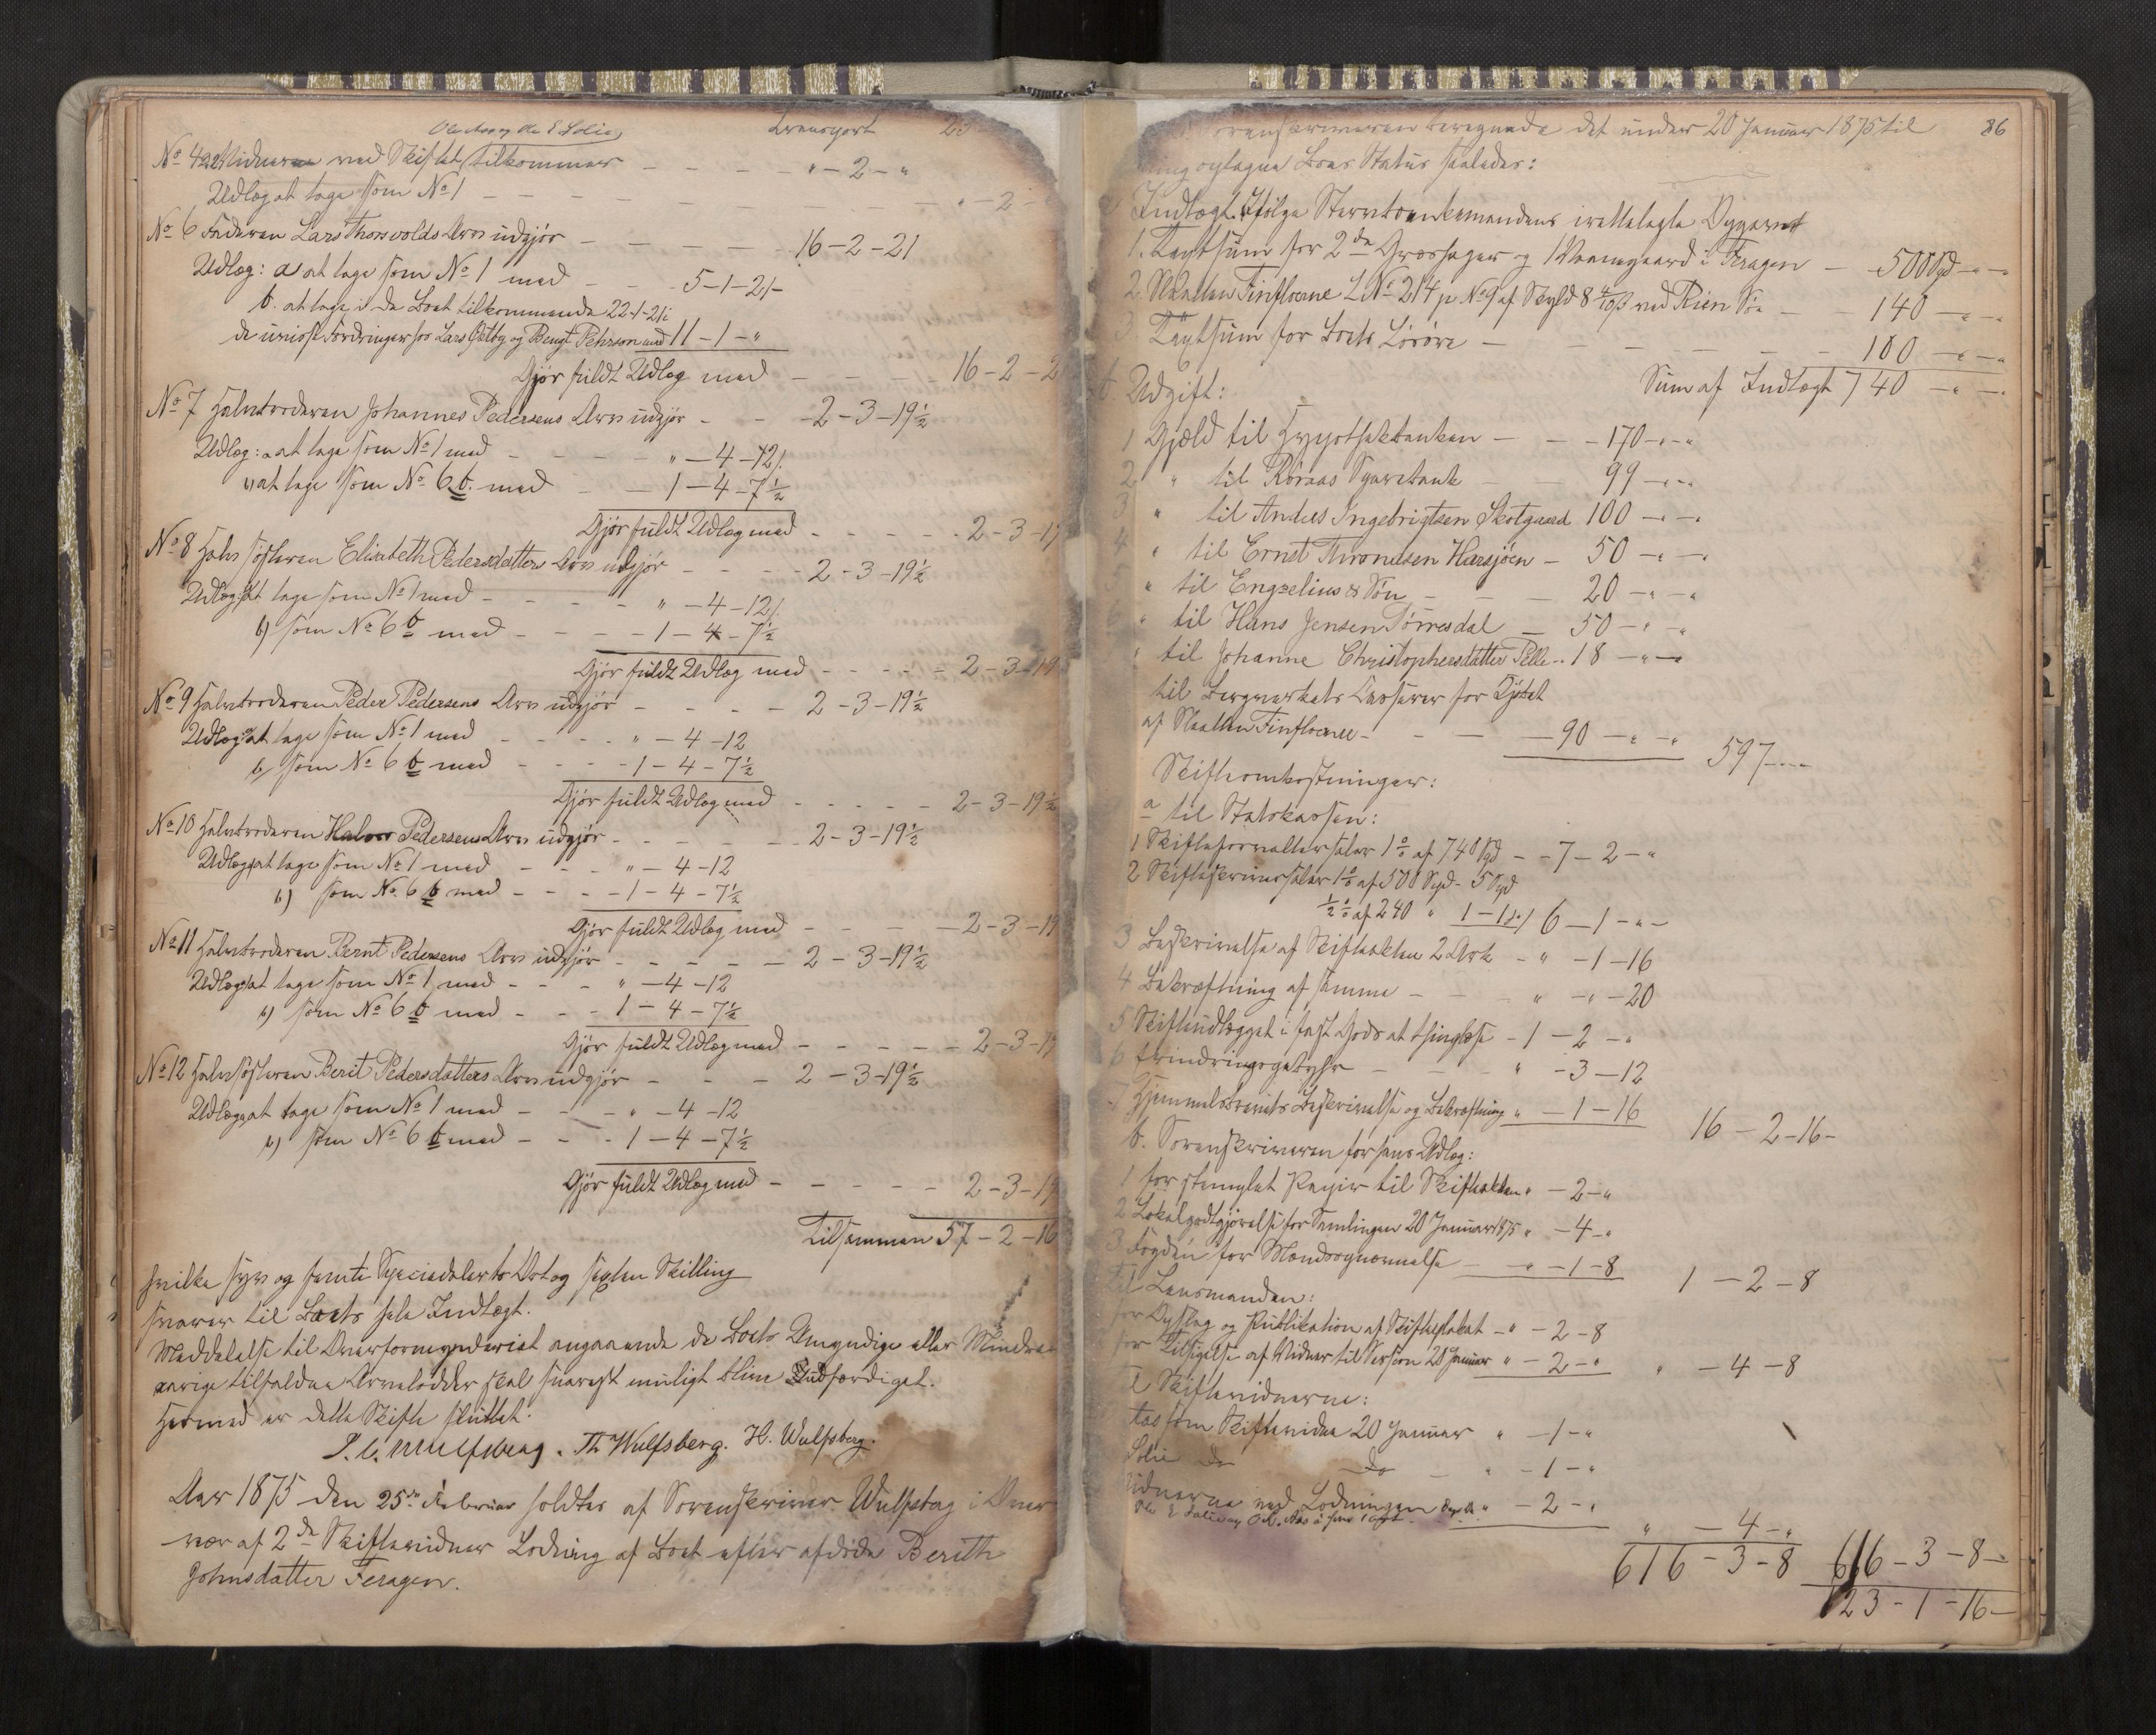 Transport 25
Ole Aas og Ole E Solie,
No 4 a 2 Vidnerne ved Skiftet tilkommer - - - - " - 2 - "
Udlæg at tage som No 1 - - - - - - - " - 2 -
No 6 Faderen Lars Thorsvolds Arv udgjør - - - - 16 - 2 - 21
Udlæg: a at tage som No 1 med - - 5 - 1 - 21 -
b. at tage i de Boet tilkommende 22-1-21 i
de uvisse Fordringer hos Lars Østby og Bengt Pehrson med 11 - 1 - "
Gjør fuldt Udlæg med - - - - 16 - 2 - 2
No 7 Halvbroderen Johannes Pedersens Arv udgjør - - 2 - 3 - 19½
Udlæg: a at tage som No 1 med - - - " - 4 - 12
b) at tage som No 6 b. med - - 1 - 4 - 7½
Gjør fuldt Udlæg med - - - - - 2 - 3 - 19
No 8 Halvsøsteren Elisabeth Pedersdatters Arv udgjør - - - - 2 - 3 - 19½
Udlæg: a at tage som No 1 med - - - - " - 4 - 12
b) som No 6 b med - - - - 1 - 4 - 7½
Gjør fuldt Udlæg med - - - - 2 - 3 - 19
No 9 Halvbroderen Peder Pedersens Arv udgjør - - - - 2 - 3 - 19½
Udlæg: a at tage som No 1 med - - - - " - 4 - 12
b/ som No 6 b med - - - - 1 - 4 - 7½
Gjør fuldt Udlæg med - - - - - 2 - 3 - 19½
No 10 Halvbroderen Halvor Pedersens Arv udgjør - - - - 2 - 3 - 19½
Udlæg a at tage som No 1 med - - - " - 4 - 12
b) som No 6 b med - - - - 1 - 4 - 7½
Gjør fuldt Udlæg med - - - - 2 - 3 - 19
No 11 Halvbroderen Bernt Pedersens Arv udgjør - - - - - 2 - 3 - 19½
Udlæg a at tage som No 1 med - - - " - 4 - 12
b) som No 6 b med - - - 1 - 4 - 7½
Gjør fuldt Udlæg med - - - - - 2 - 3 - 19
No 12 Halvsøsteren Berit Pedersdatters Arv udgjør - - - 2 - 3 - 19½
Udlæg a at tage som No 1 med - - - " - 4 - 12
b) som No 6 b med - - - 1 - 4 - 7½
Gjør fuldt Udlæg med - - - - - 2 - 3 - 19
Tilsammen 57 - 2 - 16
hvilke syv og femti Speciedaler to Ort og sexten Skilling
svarer til Boets hele Indtægt.
Meddelelse til Overformynderiet angaaende de Boets Umyndige eller Mindre
aarige tilfaldne Arvelodder skal snarest muligt blive Endfærdiget.
Hermed er dette Skifte sluttet.
P. C. Wulfsberg. Th Wulfsberg. H. Wulfsberg.
Aar 1875 den 25de Februar holdtes af Sorenskriver Wulfsberg i Over
vær af 2de Skiftevidner Lodning af Boet efter afdøde Berith
Johnsdatter Feragen.
86
Sorenskriveren beregnede det under 20 Januar 1875 til
optagne Boes Status saaledes:
Indtægt. Ifølge Stervboenkemandens irettelagte Opgave
1. Taxtsum for 2de Græshager og 1 Vaaningaard i Feragen - 500 Spd - " -
2 Slaatten Finfloerne L No 214 p No 9 af Skyld 8 4/10 ß ved Rien Sø - - 140 - " - "
3 Taxtsum for Boets Løsøre - - - - - 100 - " - "
Sum af Indtægt 740 - " - "
b Udgift:
1 Gjæld til Hypothekbanken - - - 170 - " - "
2 " til Røraas Sparebank - - 99 - " - "
3 " til Anders Ingebrigtsen Skotgaard 100 - " - "
4 " til Ernst Throndsen Harsjøen - 50 - " - "
5 " til Engzelius & Søn - - - 20 - " - "
6 " til Hans Jensen Tørresdal - 50 - " - "
" til Johanne Christophersdatter Pelle - 18 - " - "
til Bergverkets Casserer for Kjøbet
af Slaatten Finfloerne - - - 90 - " - " 597 - " - "
Skifteomkostninger:
a til Statskassen:
1 Skifteforvaltersalær 1% af 740 Spd - - 7 - 2 - "
2 Skifteskriversalær 1% af 500 Spd - 5 Spd
½% af 240 " 1 - 1 6 - 1 - " -
3 Beskrivelse af Skifteakten 2 Ark - " - 1 - 16
4 Bekræftning af samme - - - " - " - 20
5 Skifteudlægget i fast Gods at thinglæse - 1 - 2 - "
6 Erindringsgebyhr - - - " - 3 - 12
7 Hjemmelsbrevets Beskrivelse og Bekræftning " - 1 - 16 16 - 2 - 16 -
b. Sorenskriveren for hans Udlæg:
1 for stemplet Papir til Skifteakten " - 2 - "
2 Lokalgodtgjørelse for Samlingen 20 Januar 1875 " - 4 - "
3 Fogden for Mændsopnævnelse - - " - 1 - 8 1 - 2 - 8
til Lensmanden:
for Opslag og Publikation af Skifteplakat - " - 2 - 8
for Tilsigelse af Vidner til Session 20 Januar " - 2 - " " - 4 - 8
til Skiftevidnerne:
Aas som Skiftevidne 20 Januar " - 1 - "
Solie do do - " - 1 - "
Vidnerne ved Lodningen " - 2 - "
Ole E Solie og O. Aas á hver 1 Ort
" - 4 - "
616 - 3 - 8 616 - 3 - 8 -
123 - 1 - 16 -